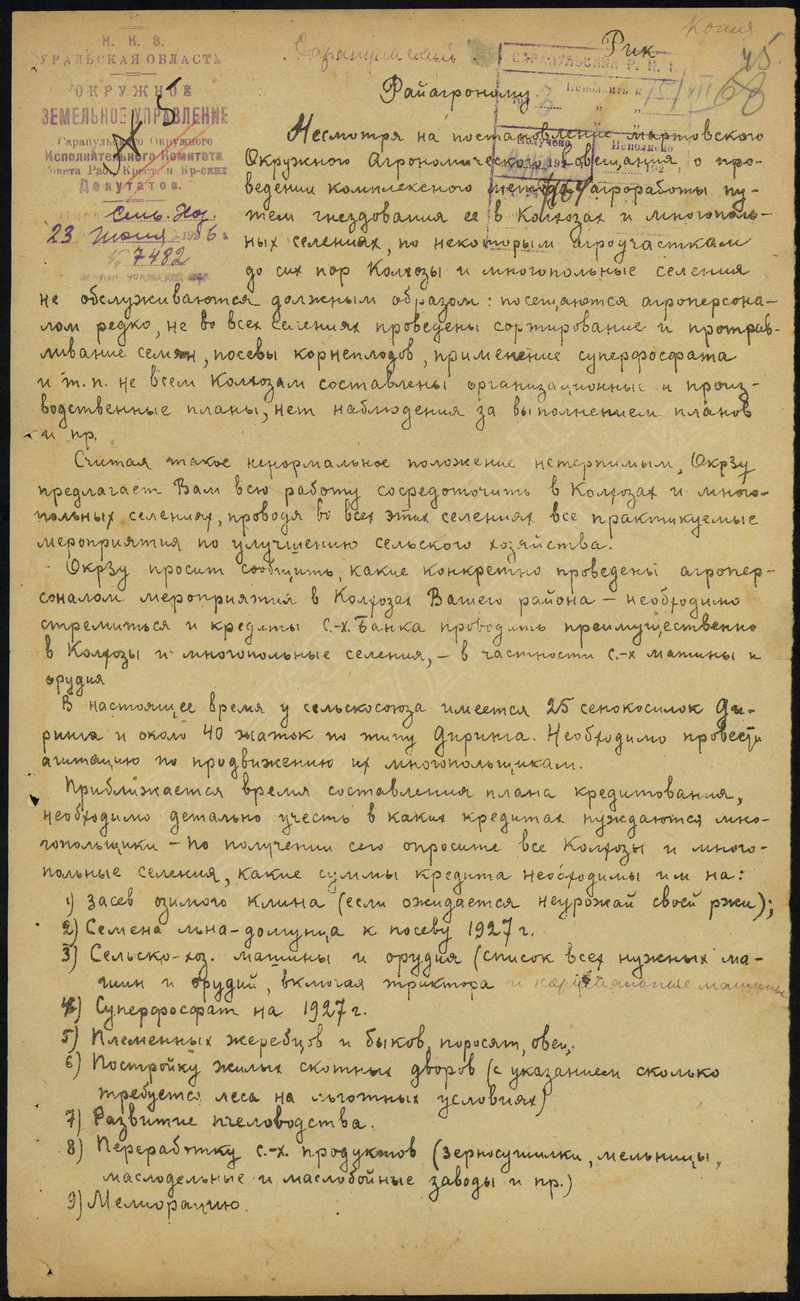 Копия
Н. К. З.
УРАЛЬСКАЯ ОБЛАСТЬ
ОКРУЖНОЕ
ЗЕМЕЛЬНОЕ УПРАВЛЕНИЕ
Сарапульского Окружного
Исполнительного Комитета
Совета Раб., Крест. и Кр-ских
Депутатов.
Сель. Хоз.
23 июня 1926 г.
№ 7482
Сарапульский Рик
75
68
САРАПУЛЬСКИЙ Р. И. К.
Получено
Исполнено
Райагроному.
Несмотря на постановление мартовского
Окружного Агрономического совещания, о про-
ведении комплексного метода агроработы пу-
тем гнездования ее в Колхозах и многополь-
ных селениях, по некоторым агроучасткам
до сих пор Колхозы и многопольные селения
не обслуживаются должным образом: посещаются агроперсона-
лом редко, не во всех селениях проведены сортирование и протрав-
ливание семян, посевы корнеплодов, применение суперфосфата
и т.п. не всем Колхозам составлены организационные и произ-
водственные планы, нет наблюдения за выполнением планов
и пр.
Считая такое ненормальное положение нетерпимым, ОкрЗУ
предлагает Вам всю работу сосредоточить в Колхозах и много-
польных селениях, проводя во всех этих селениях все практикуемые
мероприятия по улучшению сельского хозяйства.
ОкрЗу просит сообщить, какие конкретно проведены агропер-
соналом мероприятия в Колхозах Вашего района – необходимо
стремиться и кредиты С.-х. Банка проводить преимущественно
в Колхозы и многопольные селения, – в частности с.-х машины и
орудия
В настоящее время у сельскосоюза имеется 25 сенокосилок Ди-
ринга и около 40 жаток по типу Диринга. Необходимо провести
агитацию по продвижению их многопольщикам.
Приближается время составления плана кредитования,
необходимо детально учесть в каких кредитах нуждаются мно-
гопольщики – по получении сего опросите все Колхозы и много-
польные селения, какие суммы кредита необходимы им на:
1) Засев озимого клина (если ожидается неурожай своей ржи);
2) Семена льна-долгунца к посеву 1927 г.
3) Сельско-хоз. машины и орудия (список всех нужных ма-
шин и орудий, включая трактора и машины
4) Суперфосфат на 1927 г.
5) Племенных жеребцов и быков, поросят, овец.
6) Постройку жилых скотных дворов (с указанием сколько
требуется леса на льготных условиях)
7) Развитие пчеловодства.
8) Переработку с.-х. продуктов (зерносушилки, мельницы,
маслодельные и маслобойные заводы и пр.)
9) Мелиорацию.